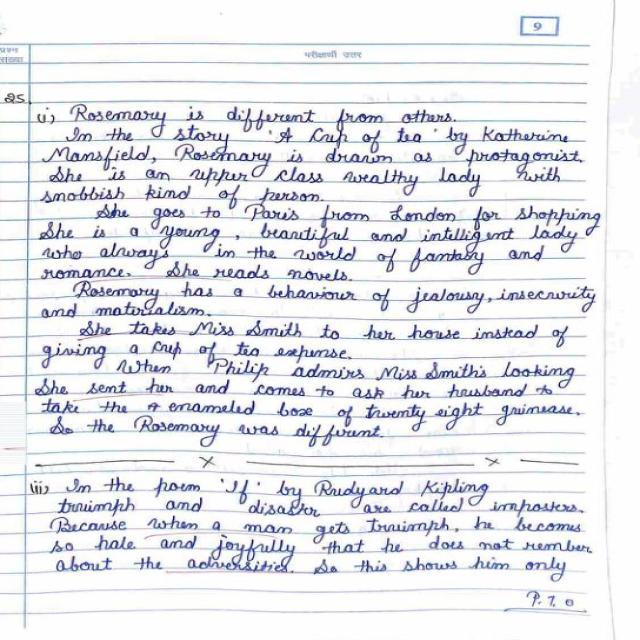 9
प्रश्न
संख्या
परीक्षार्थी उत्तर
25.
(i) Rosemary is different from others.
In the story 'A Cup of tea' by Katherine
Mansfield, Rosemary is drawn as protagonist.
She is an upper class wealthy lady with
snobbish kind of person.
She goes to Paris from London for shopping
She is a young, beautiful and intelligent lady
who always in the world of fantasy and
romance. She reads novels.
Rosemary has a behaviour of jealousy, insecurity
and materialism.
She takes Miss Smith to her house instead of
giving a cup of tea expense.
When Philip admirs Miss Smith's looking
She sent her and comes to ask her husband to
take the enameled box of twenty eight guinease.
So the Rosemary was different.
x x
(iii) In the poem 'If' by Rudyard Kipling
truimph and disaster are called imposters.
Because when a man gets truimph, he becomes
so hale and joyfully that he does not rember
about the adversities. So this shows him only
P.T.O